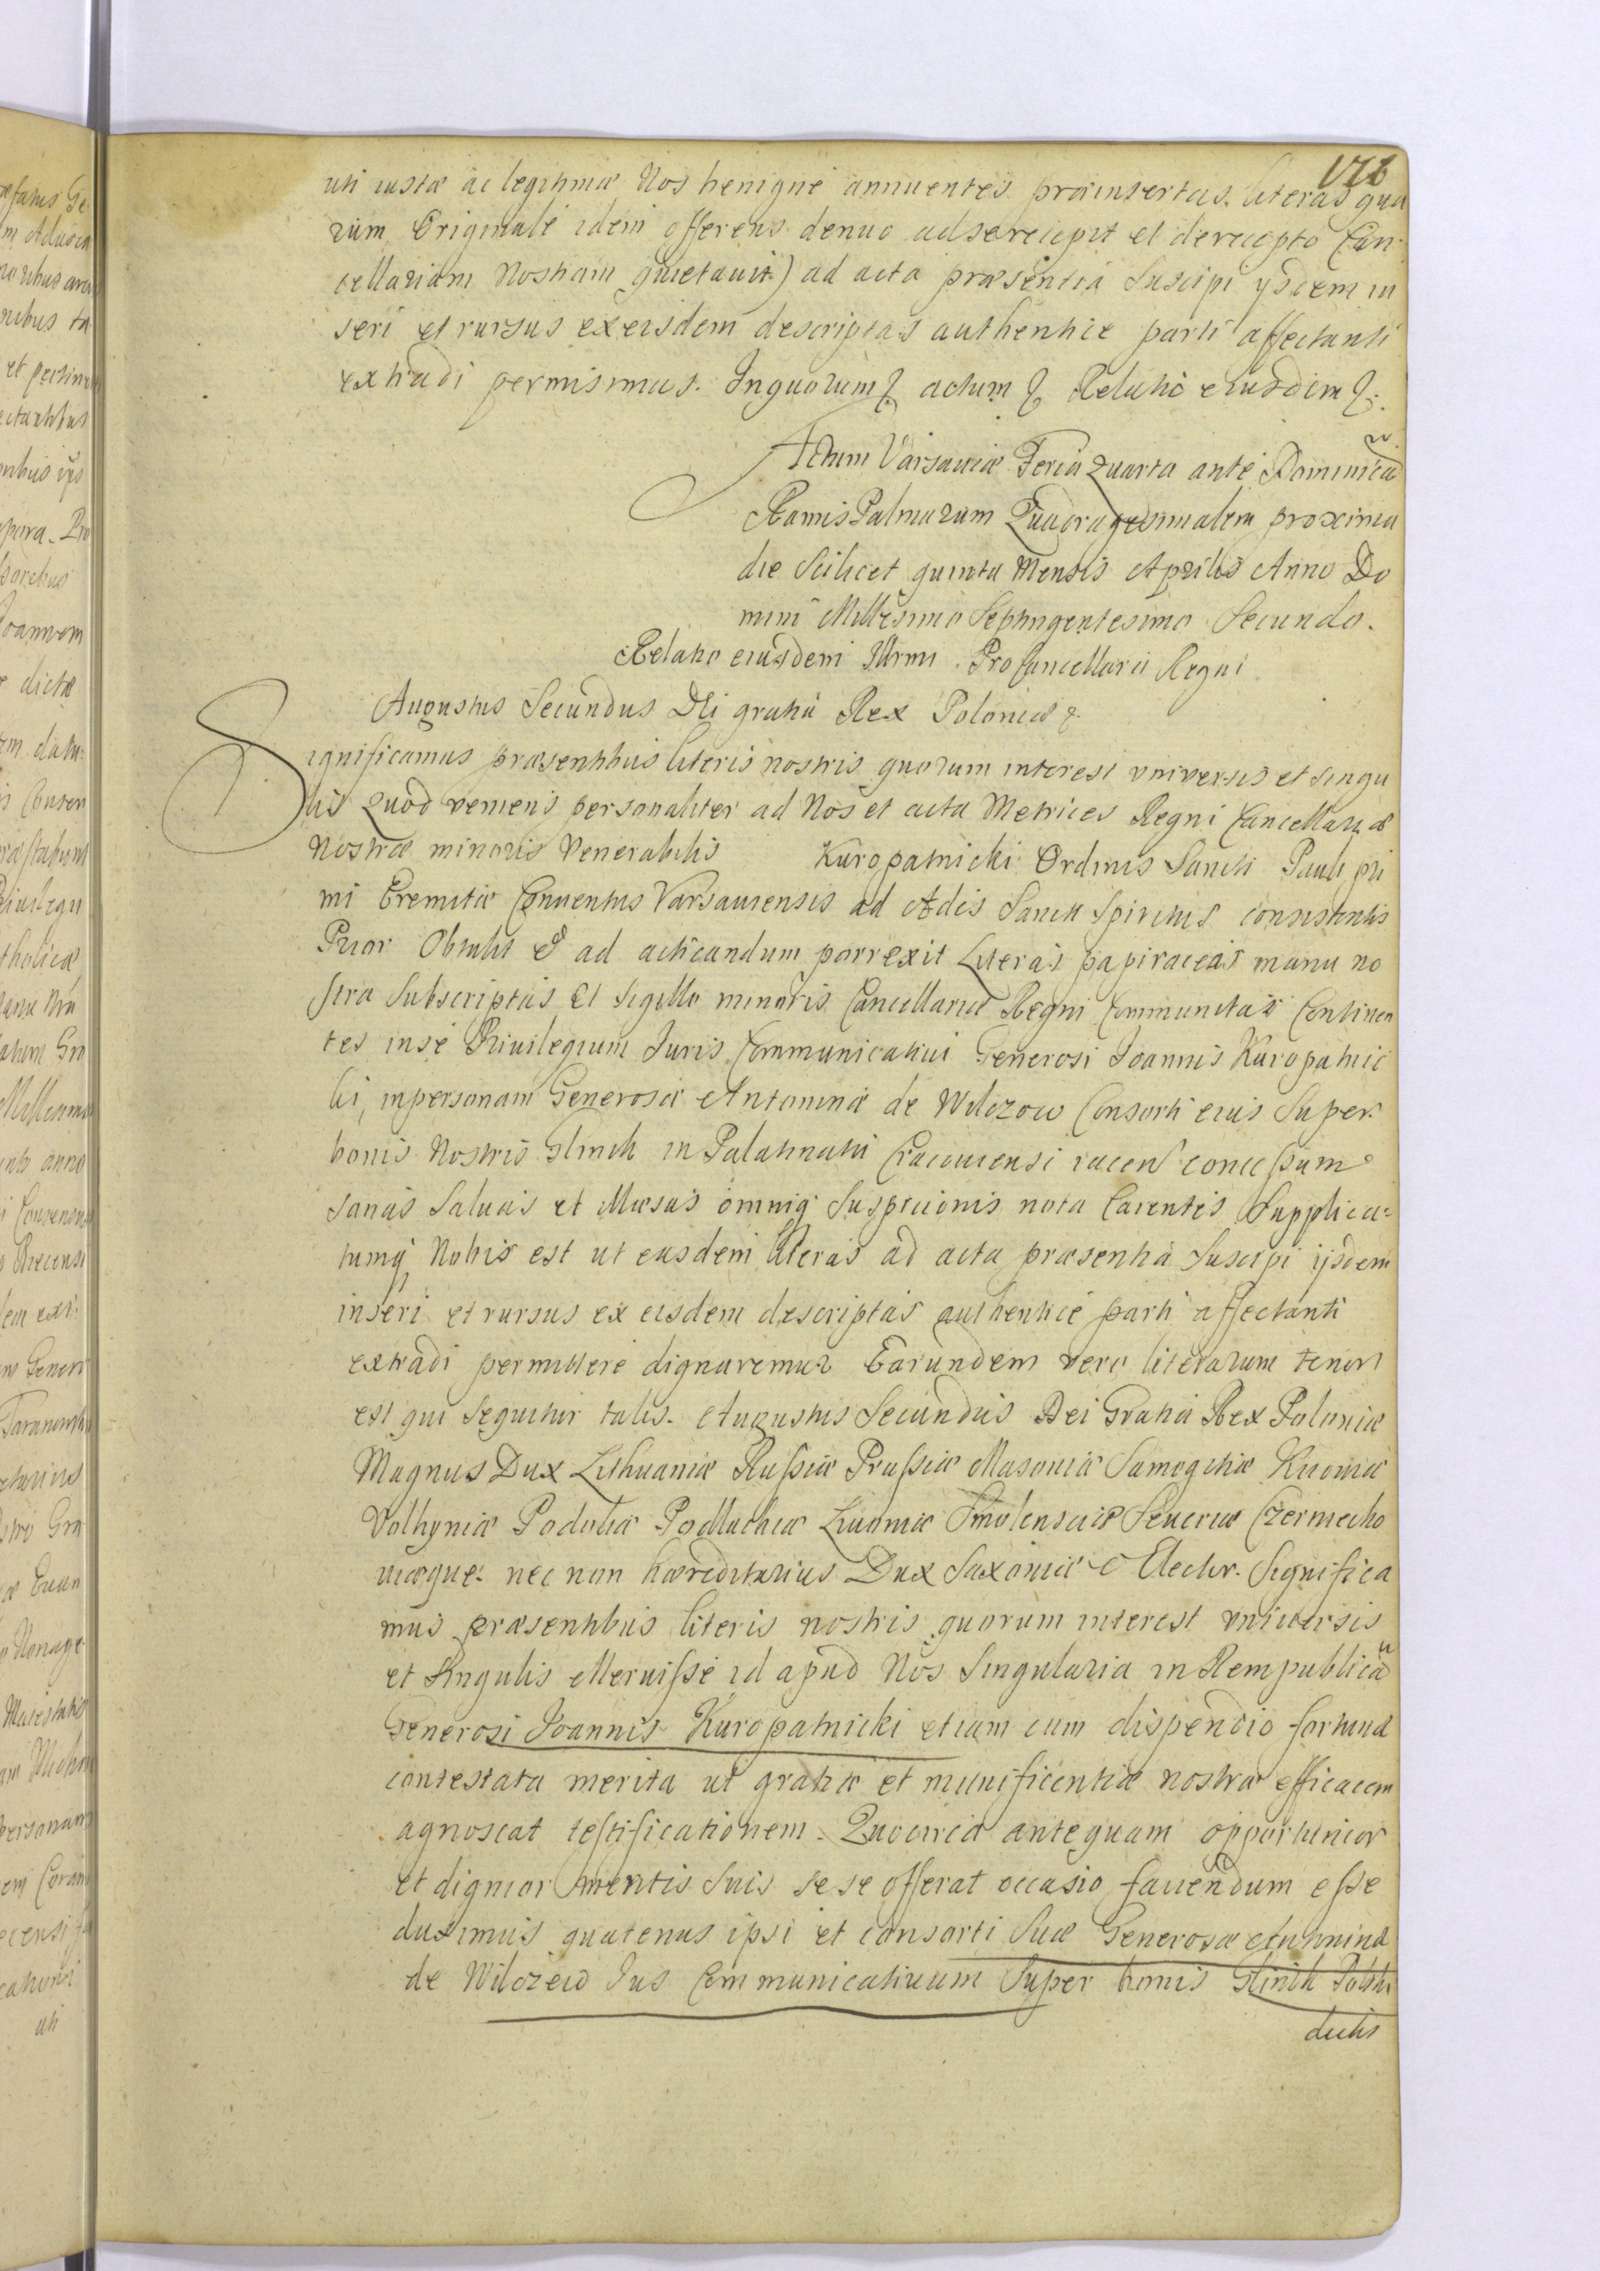 uti iustæ ac legitimæ Nos benigne annuentes præinsertas literas quo
rum Originale idem offerens denuo ad se recepit et de recepto Can-
cellariam Nostram quietauit) ad acta præsentia Suscipi ysdem in
seri et rursus ex eisdem descriptas authentice parti affectanti
extradi permisimus. In quorum actum Relatio eiusdem
Actum Varsauiæ Feria Quarta ante Dominicã
Ramis Palmarum Quadragesimalem proxima
die Scilicet quinta Mensis Aprilis Anno Do
mini Millesimo Septingentesimo Secundo.
Relatio eiusdem Illrmi Procancellarii Regni
Augustus Secundus Dei gratia Rex Poloniæ
Significamus præsentibus literis nostris quorum interest vniversis et singu
lis Quod veniens personaliter ad Nos et acta Metrices Regni Cancellariæ
Nostræ minoris Venerabilis Kuropatnicki Ordinis Sancti Pauli pri
mi Eremitæ Conuentus Varsauiensis ad Ædes Sancti Spiritus consistentis
Prior Obtulit & ad acticandum porrexit Literas papiraceas manu no
stra Subscriptas Et Sigillo minoris Cancellariæ Regni Communitas Continen
tes in se Priuilegium Iuris Communicatiui Generosi Ioannis Kuropatnic
ki, in personam Generosæ Antoninæ de Wilczow Consorti eius Super
bonis Nostris Glinik in Palatinatu Cracouiensi iacen concessum
sanas Saluas et illæsas omniq Suspicionis nota Carentes Supplica-
tumq Nobis est ut easdem literas ad acta præsentia Suscipi ijsdem
inseri et rursus ex eisdem descriptas authentice parti affectanti
extradi permittere dignaremur Earundem vero literarum tenor
est qui Sequitur talis. Augustus Secundus Dei Gratia Rex Poloniæ
Magnus Dux Lithuaniæ Russiæ Prussiæ Masouiæ Samogitiæ Kiiouiæ
Volhyniæ Podoliæ Podlachiæ Liuoniæ Smolensciæ Seueriæ Czerniecho
uiæque nec non hæreditarius Dux Saxoniæ & Elector. Significa
mus præsentibus literis nostris quorum interest vniuersis
et Singulis Meruisse id apud Nos Singularia in Rempublicã
Generosi Ioannis Kuropatnicki etiam cum dispendio fortunæ
contestata merita ut gratiæ et munificentiæ nostræ efficacem
agnoscat testificationem. Quocirca antequam opportunior
et dignior meritis Suis se se offerat occasio fauendum esse
duximus quatenus ipsi et consorti Suæ Generosæ Antoninæ
de Wilczew Ius Communicatiuum Super bonis Glinik Polski
dictis